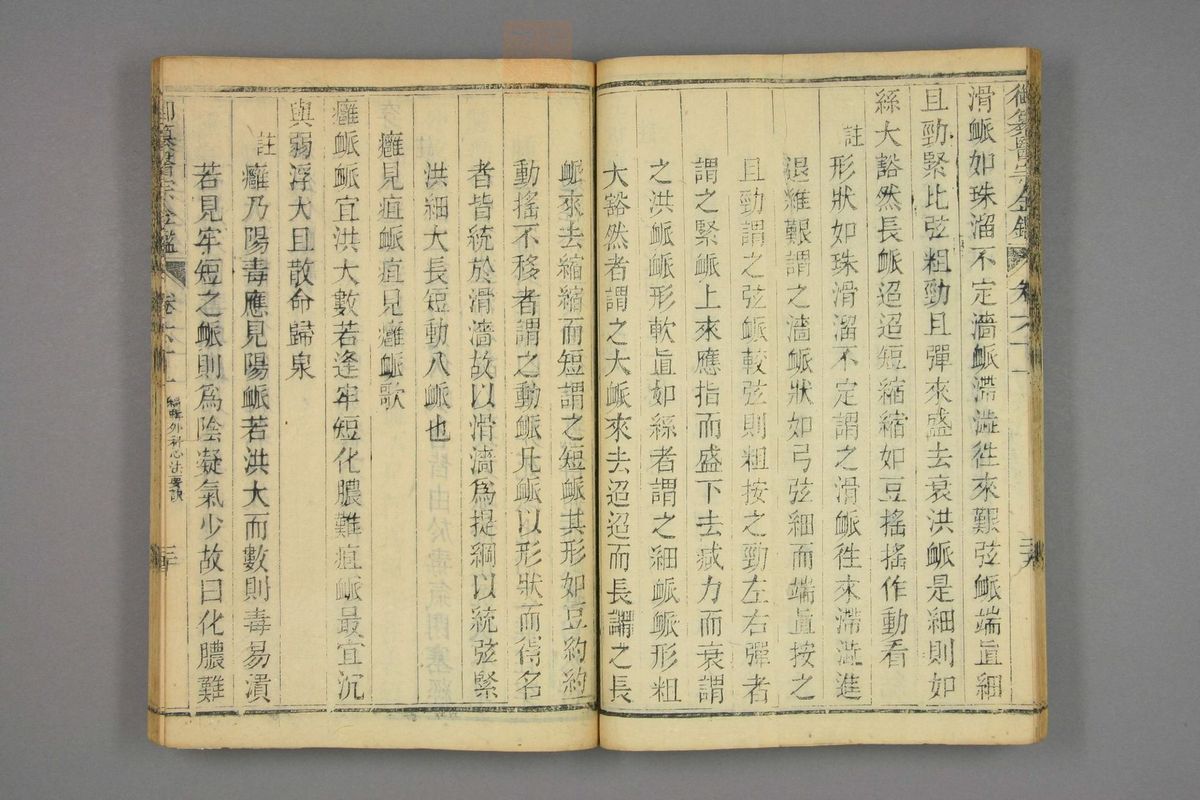 御纂醫宗金鑑 卷六十一
滑衇如珠溜不定濇衇滯澁徃來艱弦衇端直細
且勁緊比弦粗勁且彈來盛去衰洪衇是細則如
絲大豁然長衇迢迢短縮縮如豆搖搖作動看
註 形狀如珠滑溜不定謂之滑衇徃來滯澁進
退維艱謂之濇衇狀如弓弦細而端直按之
且勁謂之弦衇較弦則粗按之勁左右彈者
謂之緊衇上來應指而盛下去減力而衰謂
之洪衇衇形軟直如絲者謂之細衇衇形粗
大豁然者謂之大衇來去迢迢而長謂之長
衇來去縮縮而短謂之短衇其形如豆約約
動搖不移者謂之動衇凡衇以形狀而得名
者皆統於滑濇故以滑濇爲提綱以統弦緊
洪細大長短動八衇也
癰見疽衇疽見癰衇歌
癰衇衇宜洪大數若逢牢短化膿難疽衇最宜沉
與弱浮大且散命歸泉
註 癰乃陽毒應見陽衇若洪大而數則毒易潰
若見牢短之衇則爲陰凝氣少故曰化膿難
御纂醫宗金鑑 卷六十一 編輯外科心法要訣